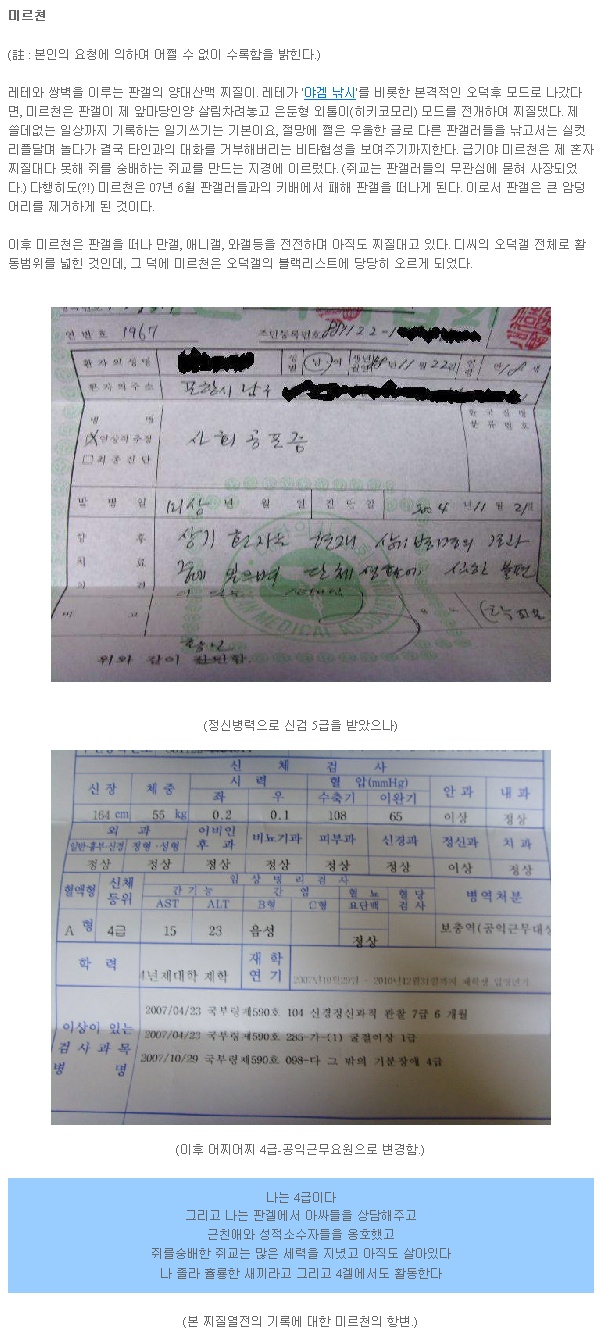 미르천
(註 : 본인의 요청에 의하여 어쩔 수 없이 수록함을 밝힌다.)
레테와 쌍벽을 이루는 판갤의 양대산맥 찌질이. 레테가 '야겜 낚시'를 비롯한 본격적인 오덕후 모드로 나갔다
면, 미르천은 판갤이 제 앞마당인양 살림차려놓고 은둔형 외톨이(히키코모리) 모드를 전개하여 찌질댔다. 제
쓸데없는 일상까지 기록하는 일기쓰기는 기본이요, 절망에 쩔은 우울한 글로 다른 판갤러들을 낚고서는 실컷
리플달며 놀다가 결국 타인과의 대화를 거부해버리는 비타협성을 보여주기까지한다. 급기야 미르천은 제 혼자
찌질대다 못해 쥐를 숭배하는 쥐교를 만드는 지경에 이르렀다. (쥐교는 판갤러들의 무관심에 묻혀 사장되었
다.) 다행히도(?!) 미르천은 07년 6월 판갤러들과의 키배에서 패해 판갤을 떠나게 된다. 이로서 판갤은 큰 암덩
어리를 제거하게 된 것이다.
이후 미르천은 판갤을 떠나 만갤, 애니갤, 와갤등을 전전하며 아직도 찌질대고 있다. 디씨의 오덕갤 전체로 활
동범위를 넓힌 것인데, 그 덕에 미르천은 오덕갤의 블랙리스트에 당당히 오르게 되었다.
연번호 1967 주민등록번호
환자의성명 성별 남 여
환자의주소 포항시 남구
병명
임상적추정 사회공포증
최종진단
발병일 미상 년 월 일 진단일 11월 21일
상기 환자는 현재
단체생활에
비고
위와 같이 진단함.
(정신병력으로 신검 5급을 받았으나)
신체검사
신장 체중 시력 혈압(mmHg) 안과 내과
좌 우 수축기 이완기
164 cm 55 kg 0.2 0.1 108 65 이상 정상
외과 이비인후과 비뇨기과 피부과 신경과 정신과 치과
일반·흉부·신경 정형·성형
정상 정상 정상 정상 정상 정상 이상 정상
혈액형 신체등위 임상병리검사 병역처분
간기능 간염 뇨 혈당검사
AST ALT B형 C형 요단백
A형 4급 15 23 음성 정상 보충역(공익근무대상
학력 4년제대학 재학 재학연기
이상이 있는 검사과목 병명
2007/04/23 국부령제590호 104 신결정신과적 관찰 7급 6 개월
2007/04/23 국부령제590호 285-가-(1) 굴절이상 1급
2007/10/29 국부령제590호 098-다 그 밖의 기분장애 4급
(이후 어찌어찌 4급-공익근무요원으로 변경함.)
나는 4급이다
그리고 나는 판겔에서 아싸들을 상담해주고
근친애와 성적소수자들을 옹호했고
쥐를숭배한 쥐교는 많은 세력을 지녔고 아직도 살아있다
나 졸라 훌륭한 새끼라고 그리고 4겔에서도 활동한다
(본 찌질열전의 기록에 대한 미르천의 항변.)